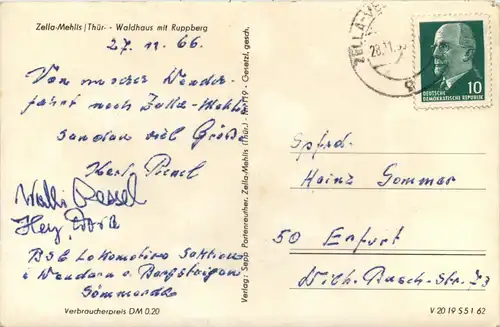 Zella-Mehlis (Thür. - Waldhaus mit Ruppberg
27. 11. 66.
Von unserer Wander-
fahrt nach Zella-Mehlis
senden viel Grüße
Karl
Walli
BSG Lokomotive Sektion
Wandern u Bergsteigen
Sömmerda
Verbraucherpreis DM 0.20
Verlag: Sepp Partenreuther, Zella-Mehlis (Thür.) - Gesetzl. gesch.
ZELLA-
28.11.
DEUTSCHE
DEMOKRATISCHE REPUBLIK
10
Spfrd.
Heinz Sommer
50 Erfurt
Wilh.-Busch-Str.
V 20 19 S 5 1 62